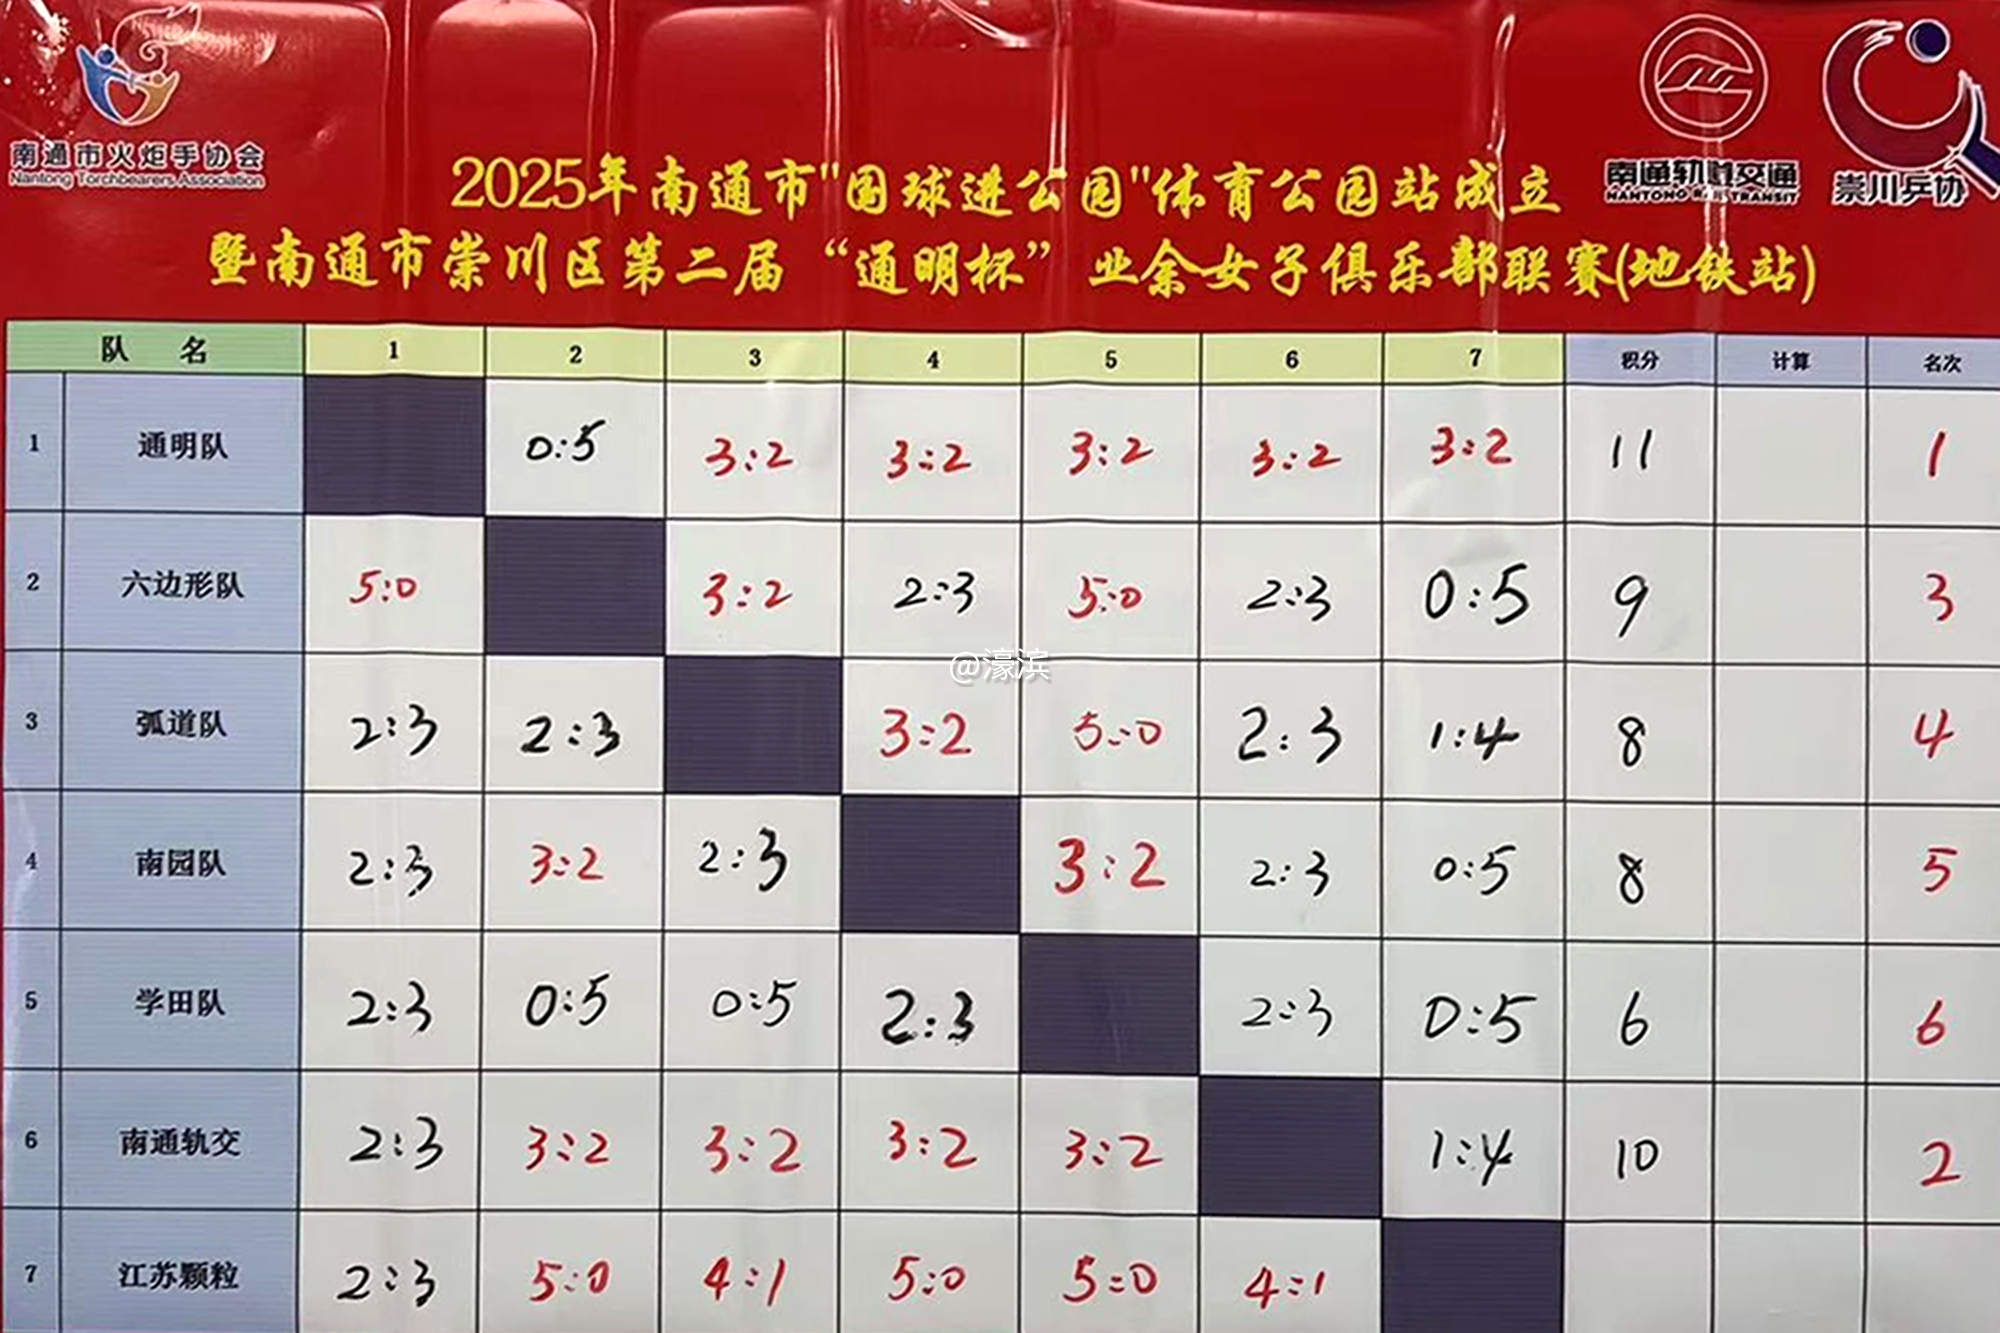 南通市火炬手协会
Nantong Torchbearers Association
南通轨道交通
NANTONG RAIL TRANSIT
崇川乒协
2025年南通市"国球进公园"体育公园站成立
暨南通市崇川区第二届“通明杯”业余女子俱乐部联赛(地铁站)
队 名 1 2 3 4 5 6 7 积分 计算 名次
1 通明队 0:5 3:2 3:2 3:2 3:2 3:2 11 1
2 六边形队 5:0 3:2 2:3 5:0 2:3 0:5 9 3
@濠滨
3 弧道队 2:3 2:3 3:2 5:0 2:3 1:4 8 4
4 南园队 2:3 3:2 2:3 3:2 2:3 0:5 8 5
5 学田队 2:3 0:5 0:5 2:3 2:3 0:5 6 6
6 南通轨交 2:3 3:2 3:2 3:2 3:2 1:4 10 2
7 江苏颗粒 2:3 5:0 4:1 5:0 5:0 4:1